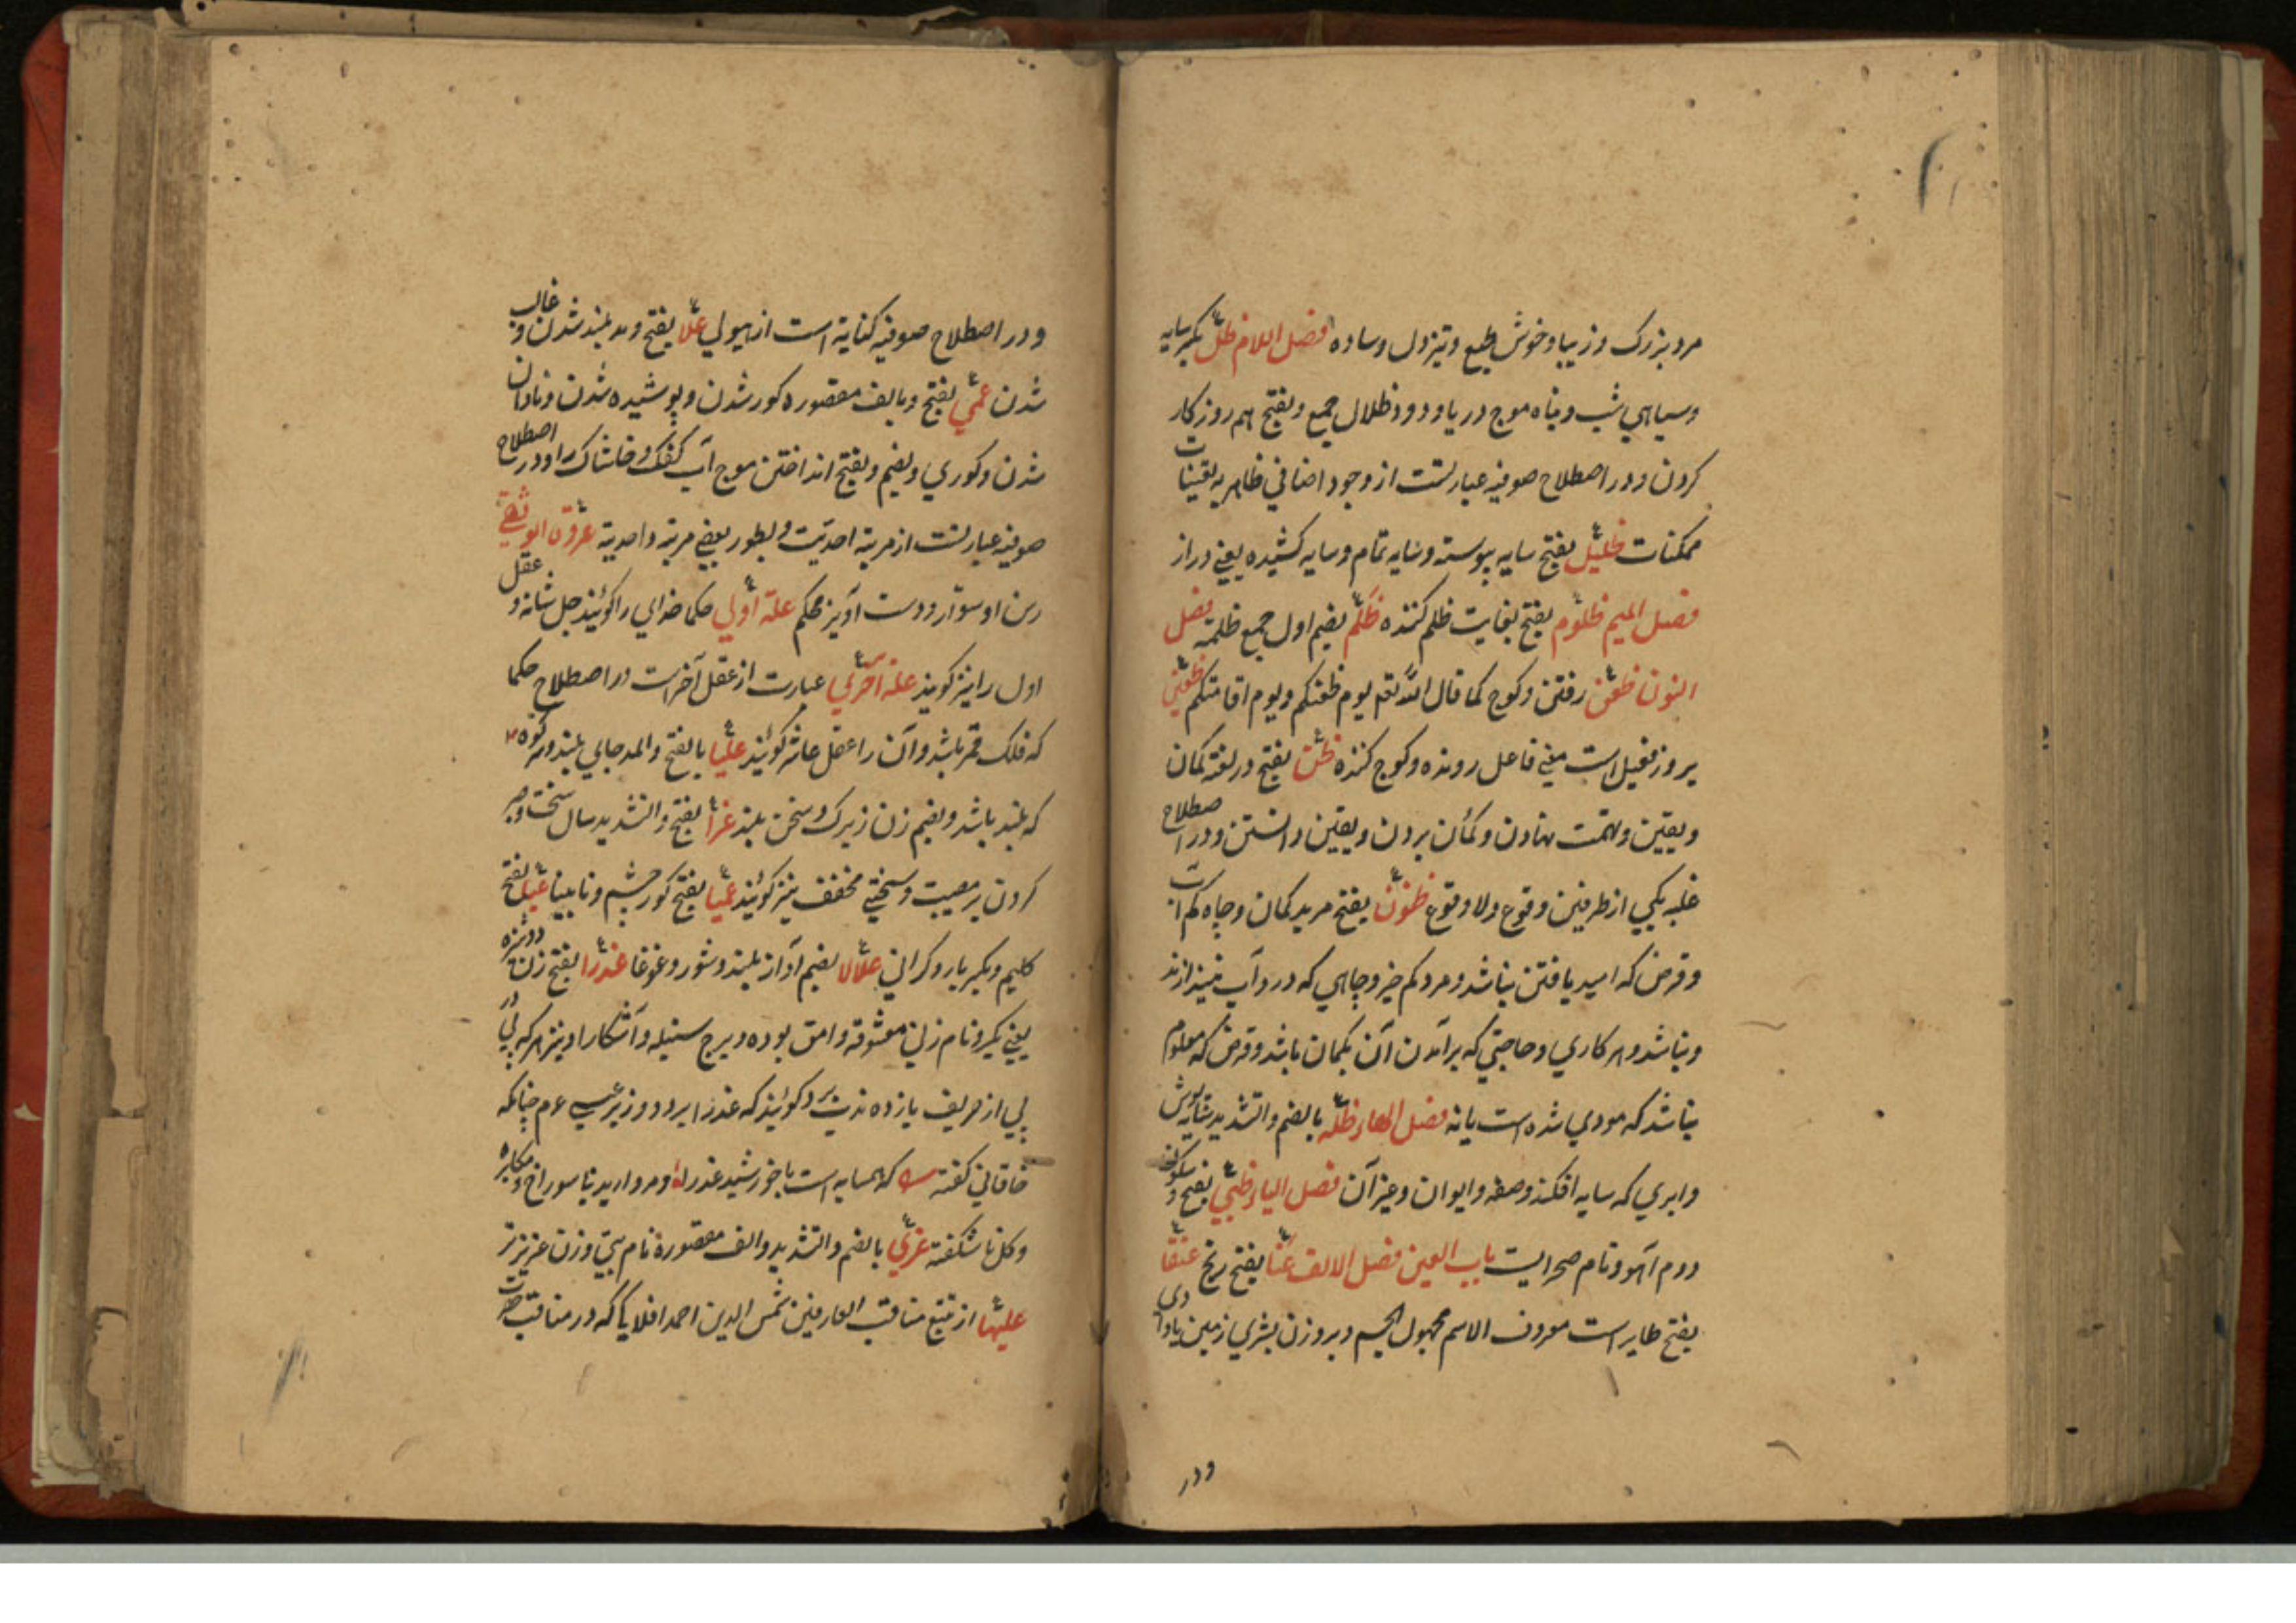 مرد بزرک و زیبا و خوش طبع و تیز دل و ساده فصل اللام ظلّ بکسر سایه
و سیاهی شب و پناه موج دریا و دود ظلال جمع و بفتح هم روزکار
کردن و در اصطلاح صوفیه عبارتست از وجود اضافی ظاهر به تعینات
ممکنات ظلیل بفتح سایه پیوسته و سایه تمام و سایه کشیده یعنی دراز
فصل المیم ظلوم بفتح بغایت ظلم کننده ظلم بضم اول جمع ظلمة فصل
النون ظعن رفتن و کوچ کما قال الله تع یوم ظعنکم و یوم اقامتکم ظعین
بروز فعیل است معنی فاعل رونده و کوچ کننده ظن بفتح در لغة کمان
و یقین و تهمت نهادن و کمان بردن و یقین دانستن و در اصطلاح
غلبه یکی از طرفین وقوع و لا وقوع ظنون بفتح مرد بد کمان و چاه کم آب
و قرض که امید یافتن نباشد و مرد کم خیر و چاهی که درو آب نیندازند
و نباشد و هر کاری و حاجتی که برآمدن آن بکمان باشد و قرض که معلوم
نباشد که مودی شده است یا نه فصل الهاء ظلّه بالضم و التشدید سایه پوش
و ابری که سایه افکند و صفه و ایوان و غیر آن فصل الیاء ظبی بفتح و سکون
دوم آهو و نام صحرایست باب العین فصل الالف عنا بفتح رنج عنقا
بفتح طایر است معروف الاسم مجهول الجسم و بروزن بشری زمین با وادی
و در
و در اصطلاح صوفیه کنایة است از هیولی علا بفتح و مد بلند شدن و غالب
شدن عمی بفتح و بالف مقصوره کور شدن و پوشیده شدن و نادان
شدن و کوری و بضم و بفتح انداختن موج آب کفک و خاشاک را و در اصطلاح
صوفیه عبارتست از مرتبه احدیت و بطور بعضی مرتبه واحدیة عروة الوثقی
رسن استوار و دست آویز محکم علة اولی حکما خدای را کوئیند جل شانه و عقل
اول را نیز کویند علة اخری عبارت از عقل آخر است در اصطلاح حکما
که فلک قمر باشد و آن را عقل عاشر کوئیند علیا بالفتح و المد جای بلند و هر کوه
که بلند باشد و بضم زن زیرک و سخن بلند عزا بفتح و التشدید سال سخت و صبر
کردن بر مصیبت و سختی مخفف نیز کوئیند عمیا بفتح کور چشم و نابینا عبا بفتح
کلیم و بکسر بار و کرانی علالا بضم آواز بلند و شور و غوغا عذرا بفتح زن دوشیزه
یعنی بکر و نام زنی معشوقه وامق بوده و برج سنبله و آشکارا و نیز هر که پی در
پی از حریف یازده ندب برد کوئیند که عذرا برد و وزیر عیسی ع م چنانکه
خاقانی کفته که همسایه است با خورشید عذرا و مروارید نا سوراخ و مکابره
و کل نا شکفته عزی بالضم و التشدید و الف مقصوره نام بتی و زن عزیزتر
علیها از تتبع مناقب العارفین شمس الدین احمد افلاکی که در مناقب حضرت